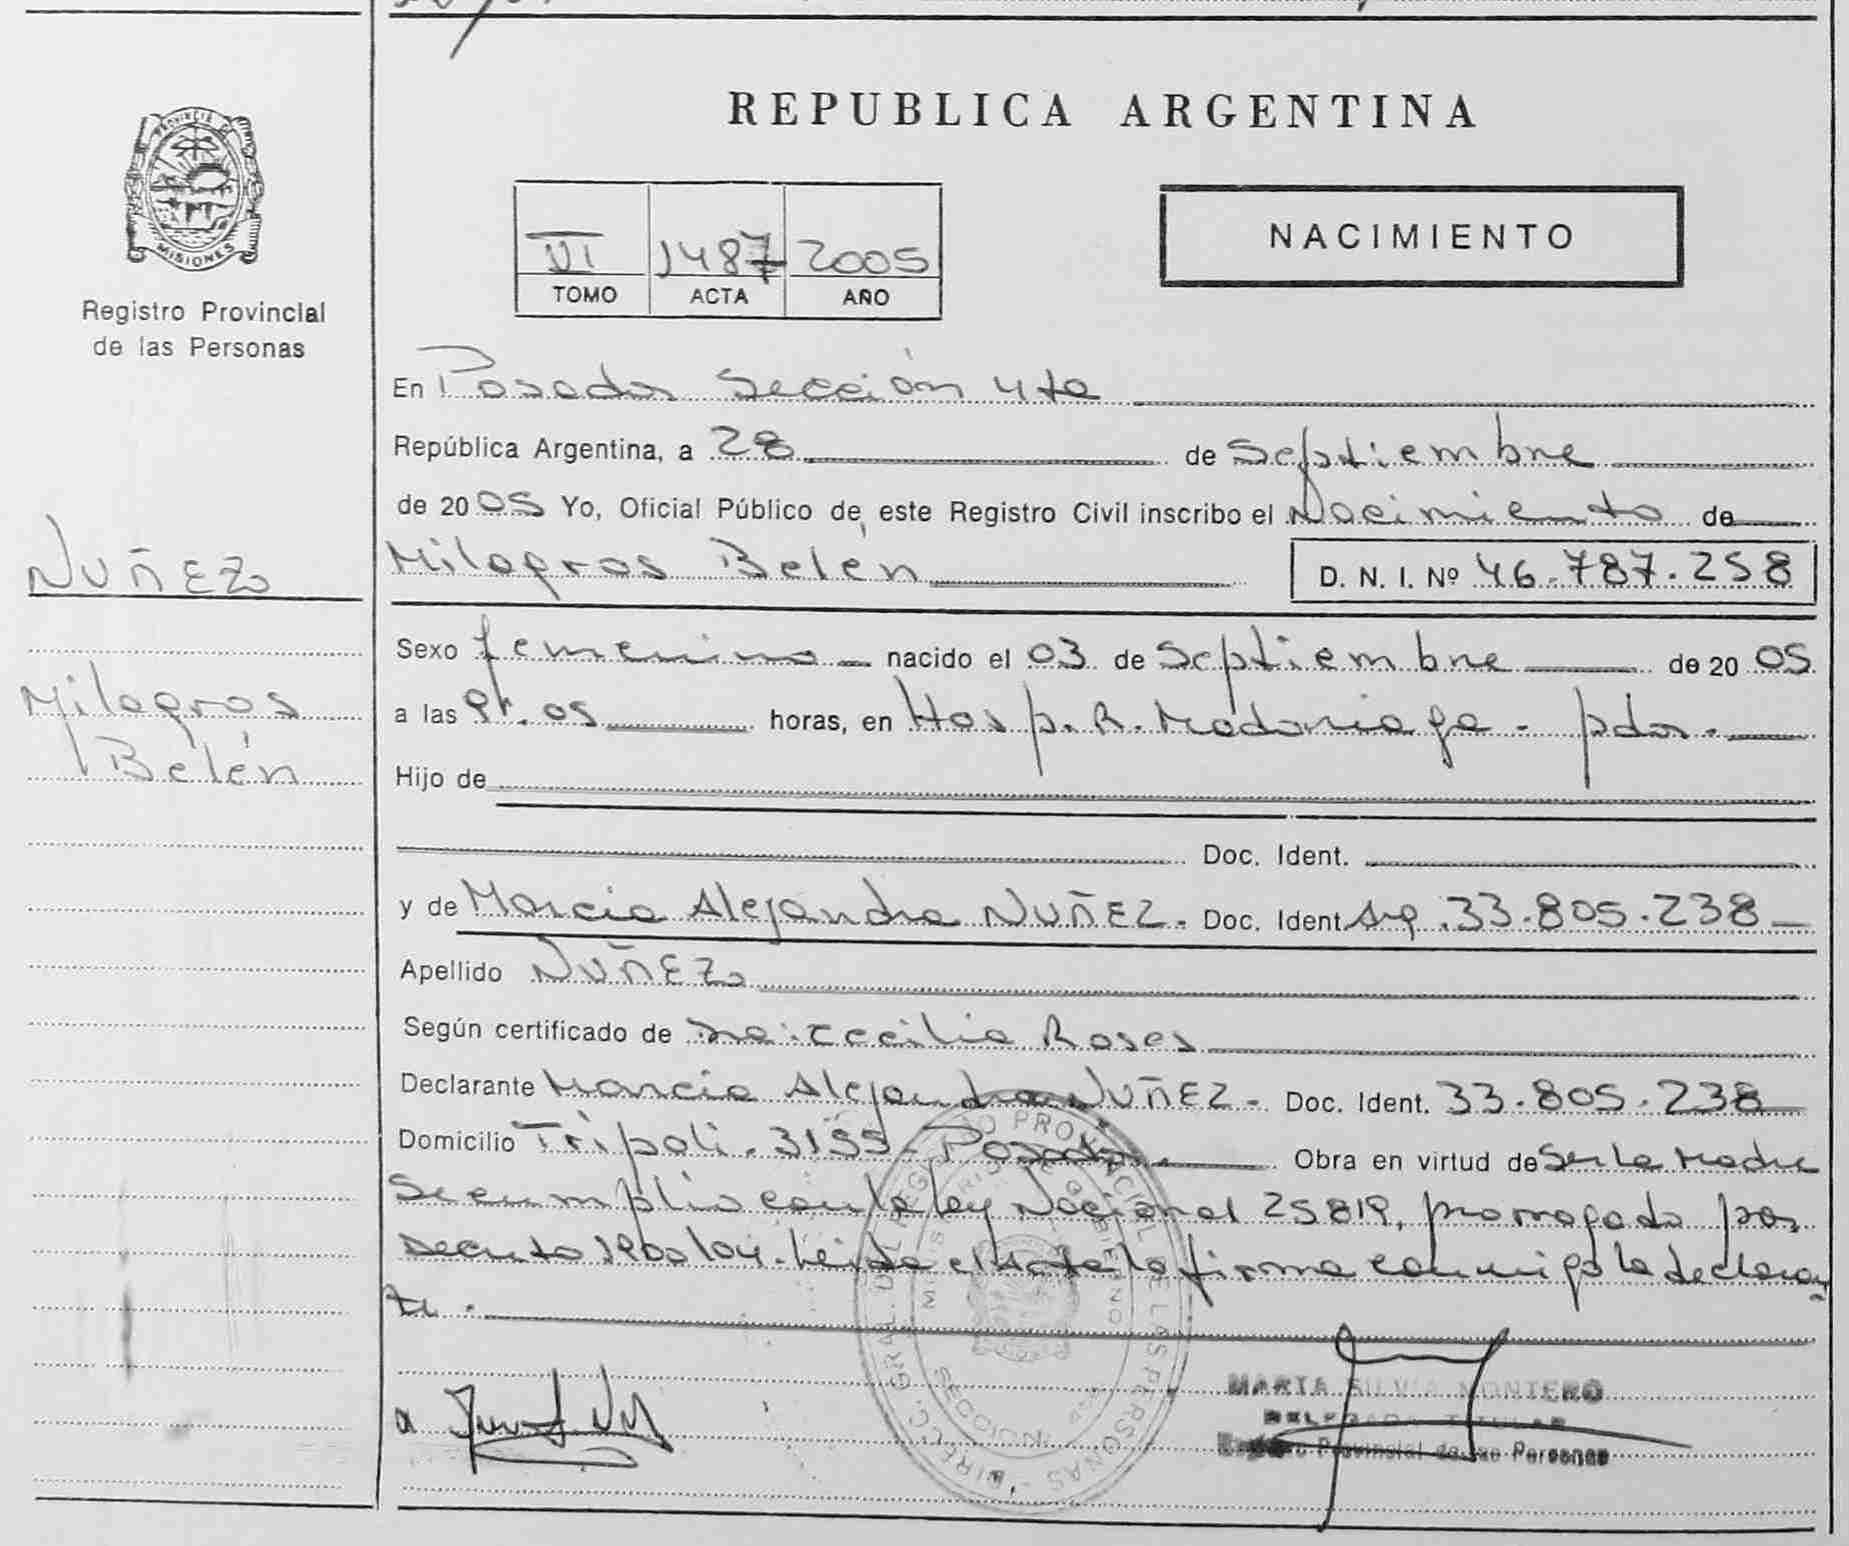 REPUBLICA ARGENTINA
PROVINCIA DE
MISIONES
Registro Provincial
de las Personas
VI 1487 2005
TOMO ACTA AÑO
NACIMIENTO
En Posadas Sección 4ta
República Argentina, a 28 de Septiembre
de 2005 Yo, Oficial Público de este Registro Civil inscribo el Nacimiento de
NUÑEZ
Milagros Belén D. N. I. Nº 46.787.258
Sexo femenino nacido el 03 de Septiembre de 20 05
Milagros
Belén
a las 9h.05 horas, en Hosp. R. Madariaga - pdas.
Hijo de
Doc. Ident.
y de Marcia Alejandra NUÑEZ - Doc. Ident. Arg. 33.805.238
Apellido NUÑEZ
Según certificado de Dra. Cecilia Roses
Declarante Marcia Alejandra NUÑEZ - Doc. Ident. 33.805.238
Domicilio Tripoli. 3155 - Posadas. Obra en virtud de Ser la Madre
Se cumplio con la ley Nacional 25819, prorrogada por
Decreto 1900/04. Leida el Acta la firma conmigo la declaran
te.
DIRECC. GRAL. DEL REGISTRO PROVINCIAL DE LAS PERSONAS
MARIA SILVIA MONTERO
DELEGADA TITULAR
Registro Provincial de las Personas